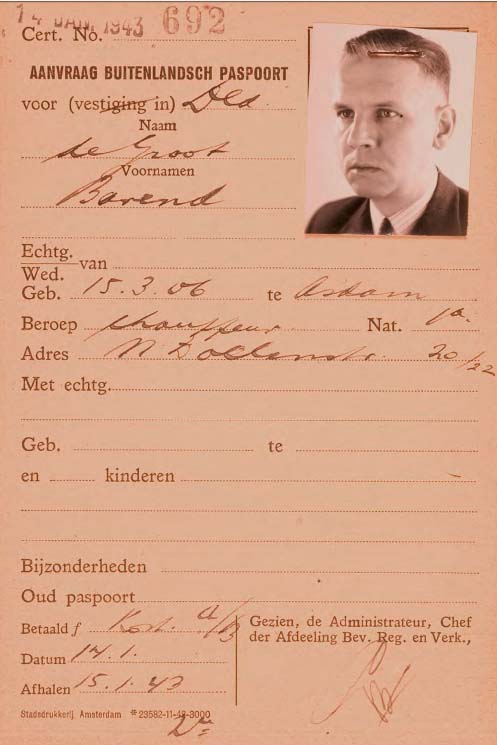 14 JAN. 1943 692
Cert. No.
AANVRAAG BUITENLANDSCH PASPOORT
voor (vestiging in) Dld
Naam
de Groot
Voornamen
Barend
Echtg.
Wed. van
Geb. 15.3.06 te Asdam
Beroep chauffeur Nat.
Adres 20/22
Met echtg.
Geb. te
en kinderen
Bijzonderheden
Oud paspoort
Betaald f Kost.
Datum 14.1.
Afhalen 15.1.43
Gezien, de Administrateur, Chef
der Afdeeling Bev. Reg. en Verk.,
Stadsdrukkerij Amsterdam *23582-11-42-3000